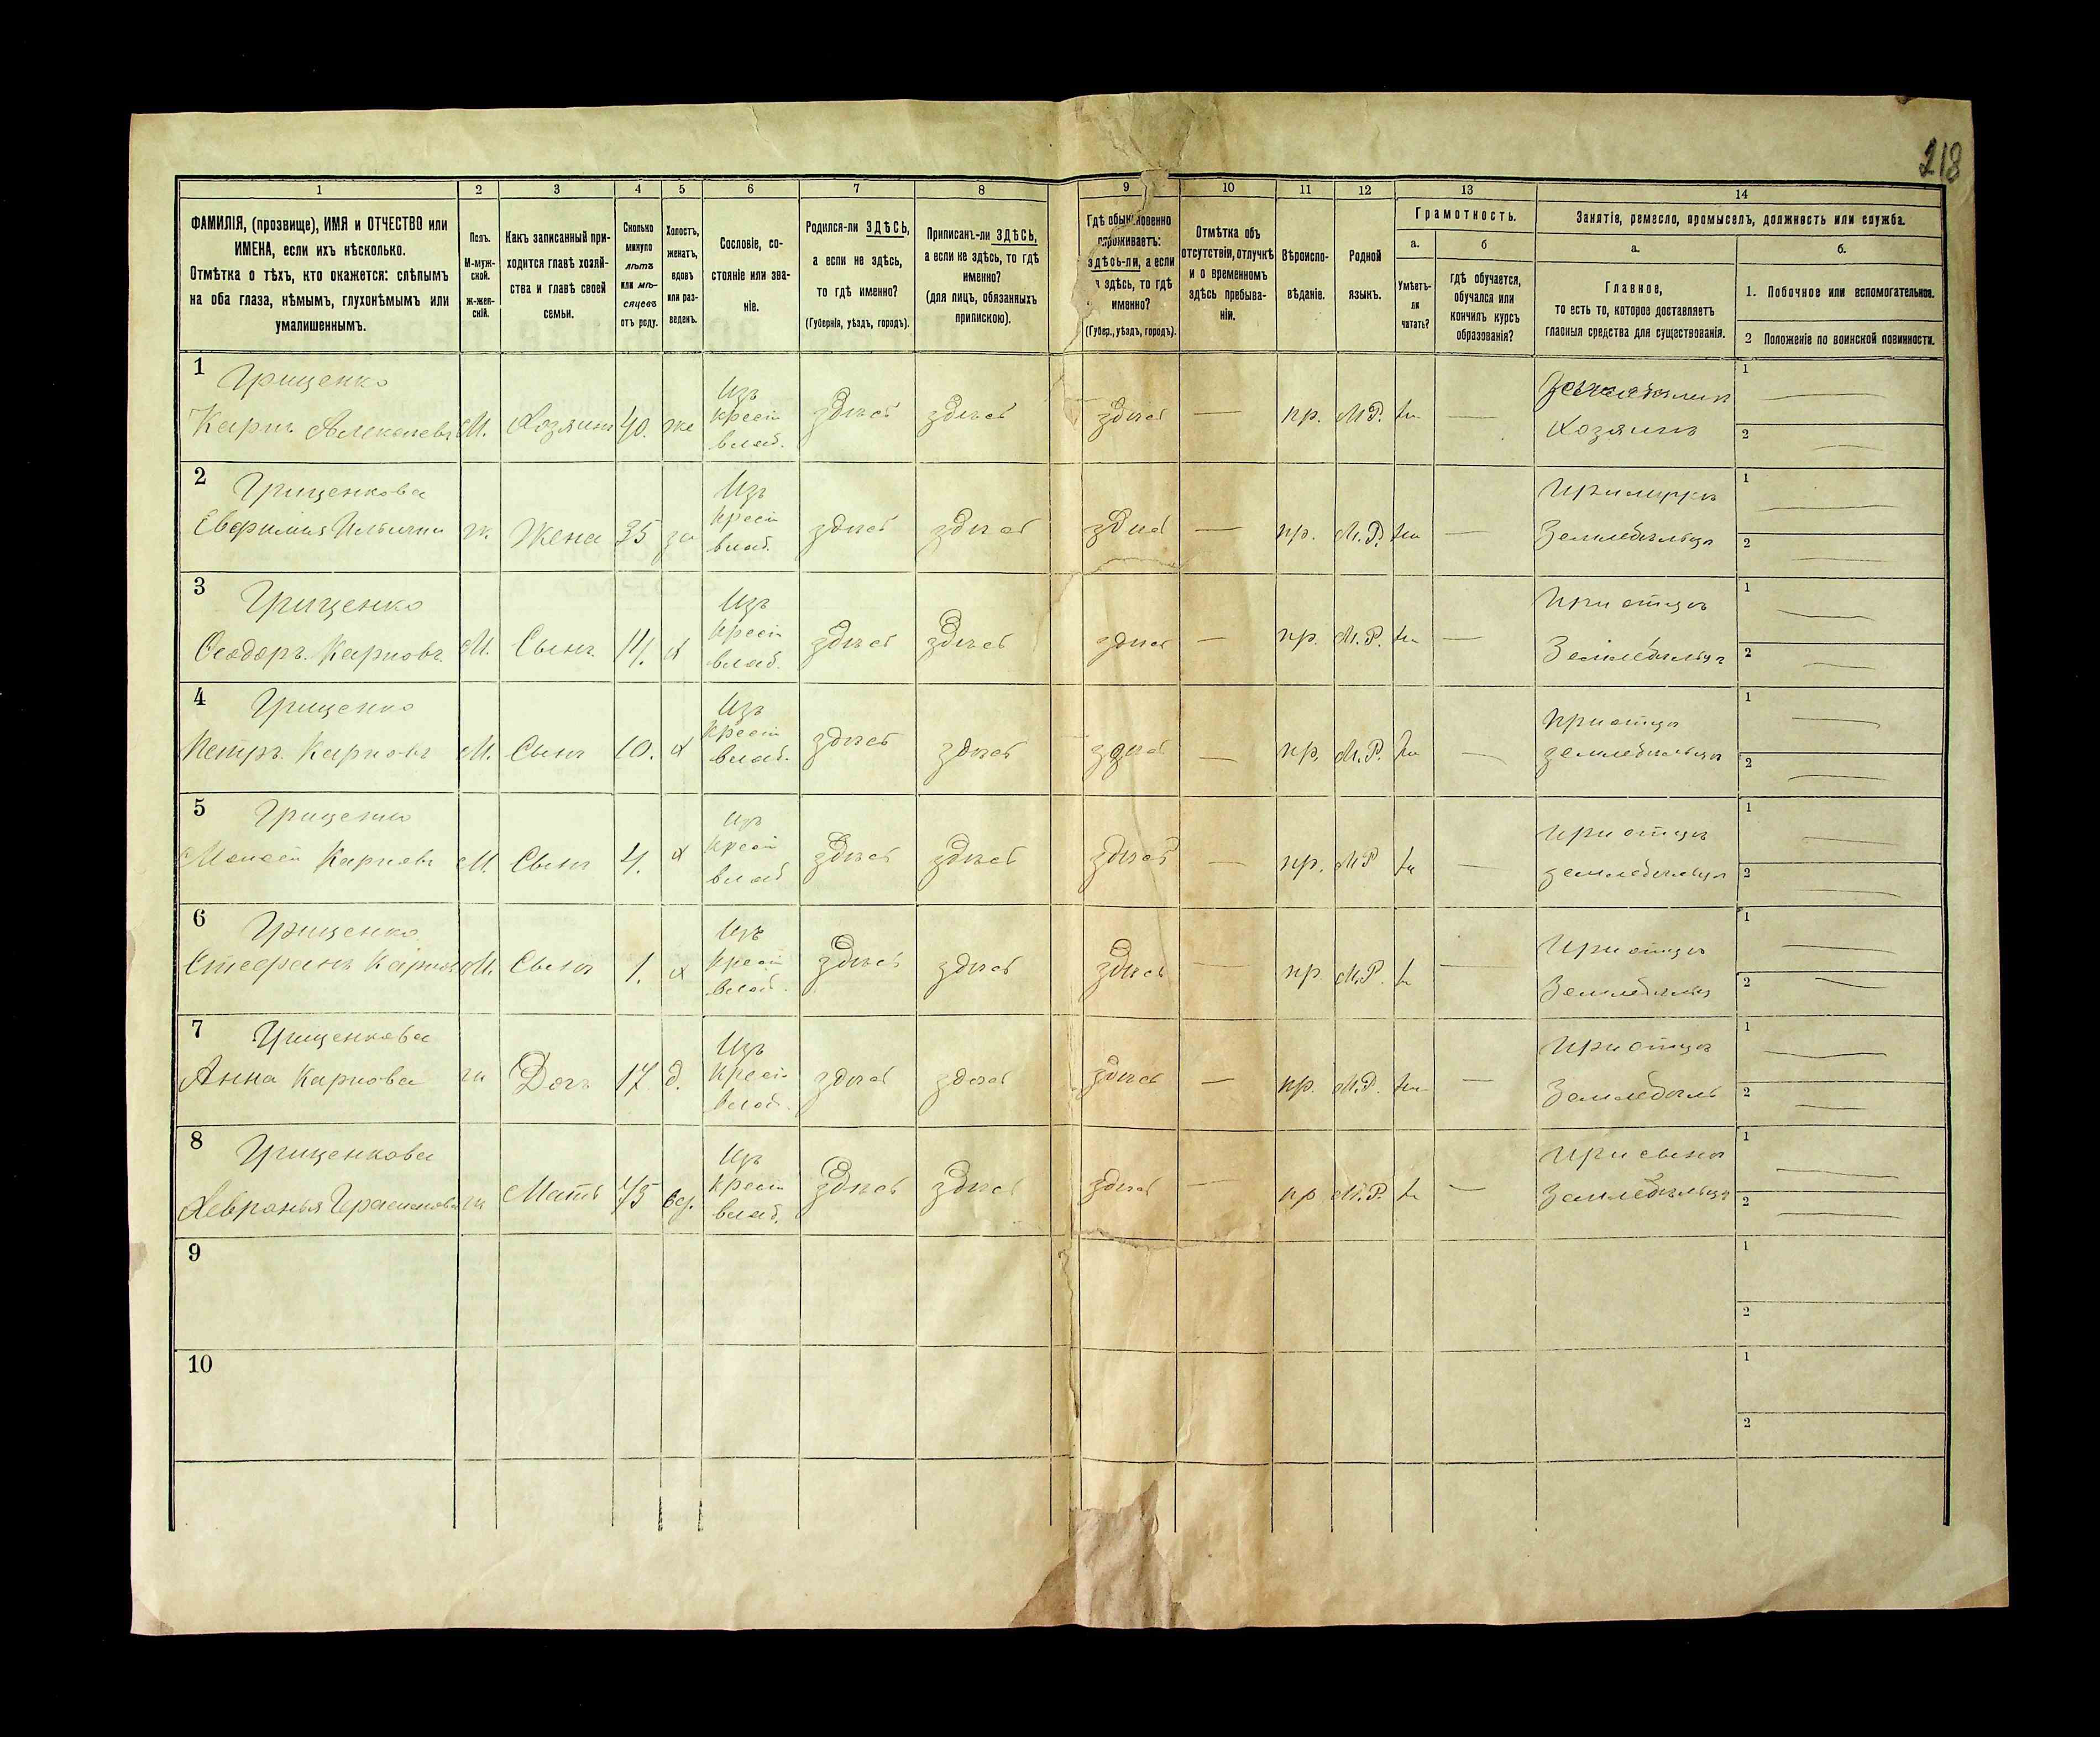 218
1 2 3 4 5 6 7 8 9 10 11 12 13 14
ФАМИЛІЯ, (прозвище), ИМЯ и ОТЧЕСТВО или
ИМЕНА, если ихъ нѣсколько.
Отмѣтка о тѣхъ, кто окажется: слѣпымъ
на оба глаза, нѣмымъ, глухонѣмымъ или
умалишеннымъ.
Полъ.
М-муж-
ской.
ж-жен-
скій.
Какъ записанный при-
ходится главѣ хозяй-
ства и главѣ своей
семьи.
Сколько
минуло
лѣтъ
или мѣ-
сяцевъ
отъ роду.
Холостъ,
женатъ,
вдовъ
или раз-
веденъ.
Сословіе, со-
стояніе или зва-
ніе.
Родился-ли ЗДѢСЬ,
а если не здѣсь,
то гдѣ именно?
(Губернія, уѣздъ, городъ).
Приписанъ-ли ЗДѢСЬ,
а если не здѣсь, то гдѣ
именно?
(для лицъ, обязанныхъ
припискою).
Гдѣ обыкновенно
проживаетъ:
здѣсь-ли, а если
здѣсь, то гдѣ
именно?
(Губер., уѣздъ, городъ).
Отмѣтка объ
отсутствіи, отлучкѣ
и о временномъ
здѣсь пребыва-
ніи.
Вѣроиспо-
вѣданіе.
Родной
языкъ.
Грамотность.
а.
Умѣетъ-
ли
читать?
б
гдѣ обучается,
обучался или
кончилъ курсъ
образованія?
Занятіе, ремесло, промыселъ, должность или служба.
а.
Главное,
то есть то, которое доставляетъ
главныя средства для существованія.
б.
1. Побочное или вспомогательное.
2 Положеніе по воинской повинности.
1
Грищенко
Карпъ Алексѣевъ М. Хозяинъ 40. же
Изъ
крест
влад.
здѣсь здѣсь здѣсь — пр. М.Р. —
Хозяинъ
1 —
2 —
2
Грищенкова
Евфимія Ильична ж. Жена 35 за
Изъ
крест
влад.
здѣсь здѣсь здѣсь — пр. М.Р. —
При мужѣ
Земледѣльцѣ
1 —
2 —
3
Грищенко
Ѳеодоръ Карповъ М. Сынъ 14. х
Изъ
крест
влад.
здѣсь здѣсь здѣсь — пр. М.Р. —
При отцѣ
Земледѣльцѣ
1 —
2 —
4
Грищенко
Петръ Карповъ М. Сынъ 10. х
Изъ
крест
влад.
здѣсь здѣсь здѣсь — пр. М.Р. —
При отцѣ
земледѣльцѣ
1 —
2 —
5
Грищенко
Моисей Карповъ М. Сынъ 4. х
Изъ
крест
влад
здѣсь здѣсь здѣсь — пр. М.Р —
При отцѣ
земледѣльцѣ
1 —
2 —
6
Грищенко
Стефанъ Карповъ М. Сынъ 1. х
Изъ
крест
влад.
здѣсь здѣсь здѣсь — пр. М.Р. —
При отцѣ
Земледѣльцѣ
1 —
2 —
7
Грищенкова
Анна Карпова ж Дочь 17 д.
Изъ
крест
влад.
здѣсь здѣсь здѣсь — пр. М.Р. —
При отцѣ
Земледѣль
1 —
2 —
8
Грищенкова
Хевронья Герасимова ж Мать 75 вд.
Изъ
крест
влад.
здѣсь здѣсь здѣсь — пр М.Р. —
При сынѣ
Земледѣльцѣ
1 —
2 —
9
1
2
10
1
2